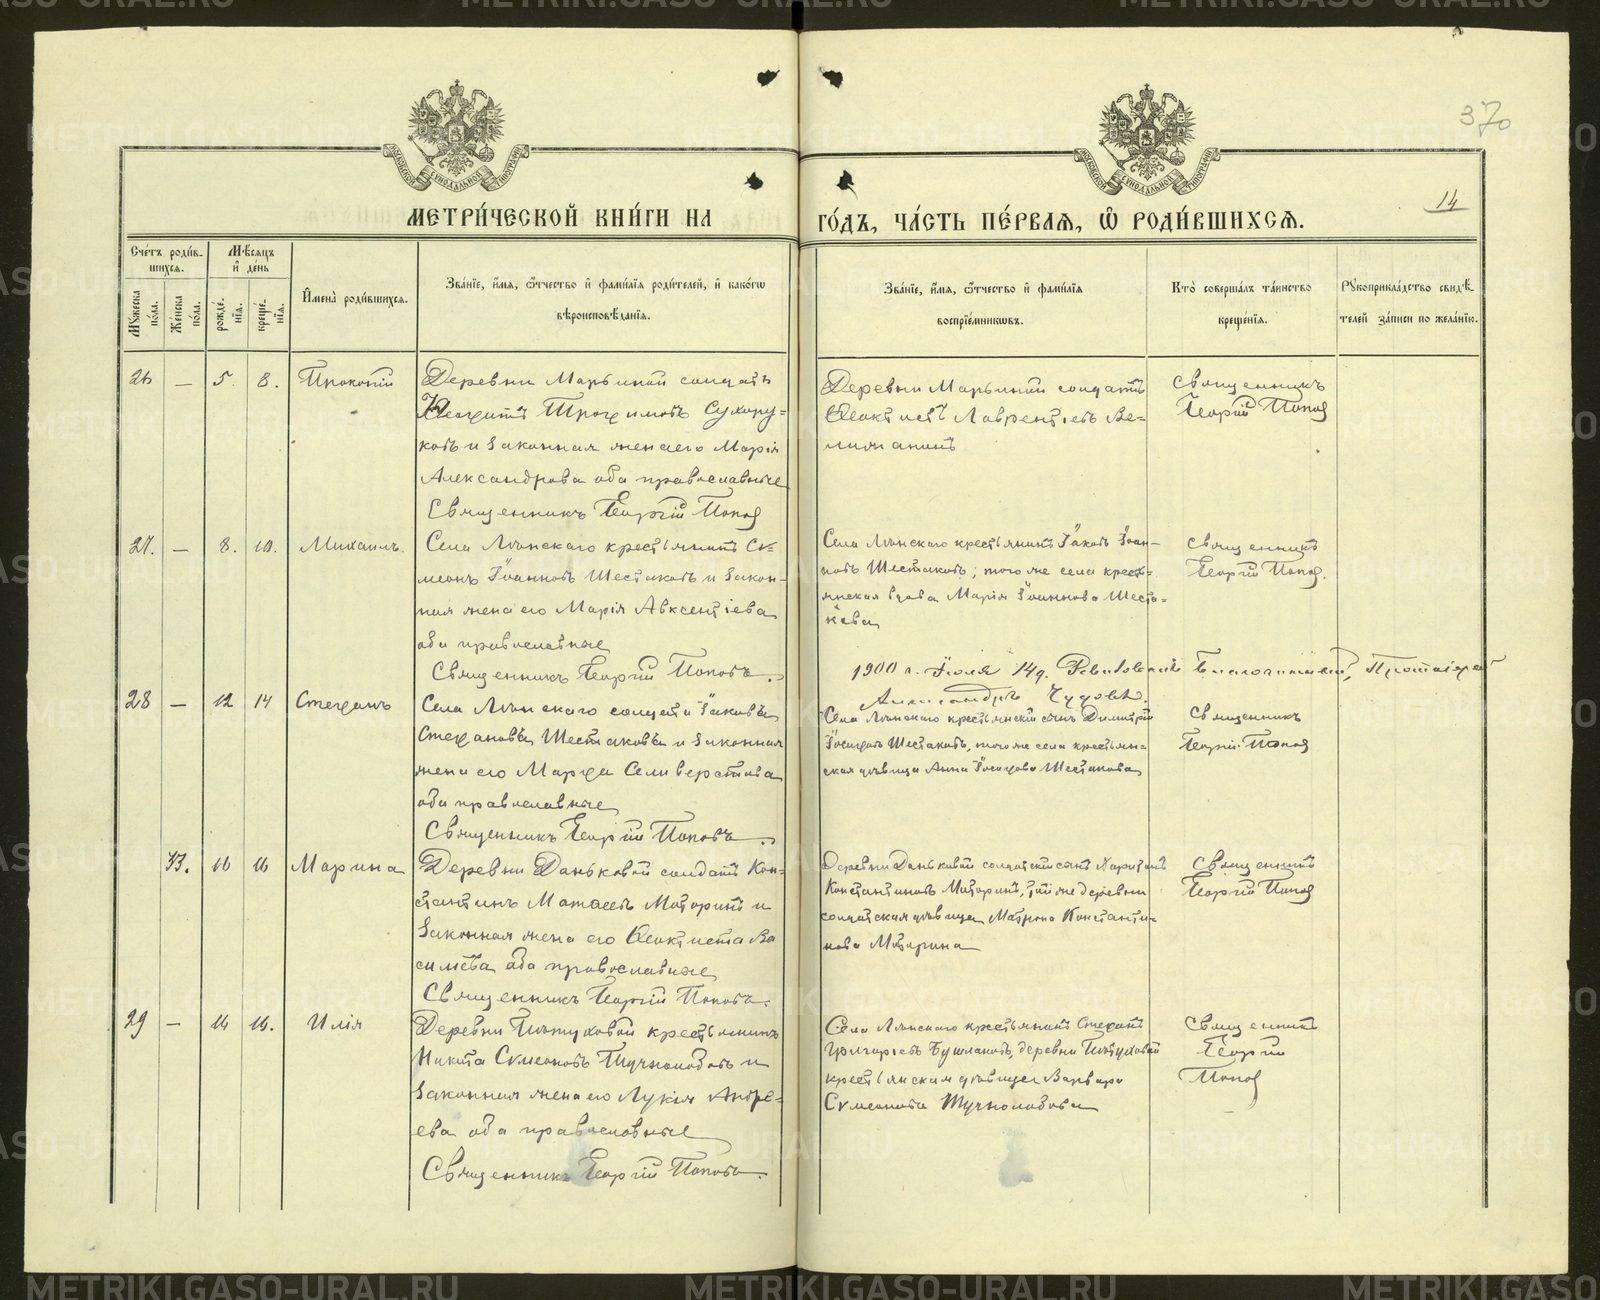 370
14
МЕТРИ́ЧЕСКОЙ КНИ́ГИ НА ГО́ДЪ, ЧА́СТЬ ПЕ́РВАѦ, Ѽ РОДИ́ВШИХСѦ.
Сче́тъ роди́в-
шихся.
Мѣ́сяцъ
и де́нь
Мꙋ́жеска по́ла.
Же́нска по́ла.
рожде́-
нїѧ.
креще́-
нїѧ.
Имена̀ роди́вшихся.
Зва́нїе, и́мѧ, ѻ҆́тчество и фами́лїѧ роди́телей, и како́гѡ
вѣроисповѣ́данїѧ.
Зва́нїе, и́мѧ, ѻ҆́тчество и фами́лїѧ
воспрїе́мникѡвъ.
Кто̀ соверша́лъ та́инство
креще́нїѧ.
Рꙋкоприкла́дство свидѣ́-
телей за́писи по жела́нїю.
26 — 5. 8. Прокопій
Деревни Марьиной солдатъ
Трофимовъ Сухору-
ковъ и законная жена его Марія
Александрова оба православные
Священникъ Георгій Попов
Деревни Марьиной солдатъ
Феоктистъ Лаврентіевъ Ве-
Священникъ
Георгій Попов
27. — 8. 10. Михаилъ.
Села крестьянинъ Си-
меонъ Іоанновъ Шестаковъ и закон-
ная жена его Марія Авксентіева
оба православные
Священникъ Георгій Поповъ.
Села крестьянинъ Іаковъ Іоан-
новъ Шестаковъ; того же села кресть-
янская вдова Марія Іоаннова Шеста-
кова
Священникъ
Георгій Попов.
1900 г. Іюля 14 д. Благочинный, Протоіерей
Александръ Чудовъ.
28 — 12 14 Стефанъ
Села солдатъ Іаковъ
Стефановъ Шестаковъ и законная
жена его Марфа Селиверстова
оба православные
Священникъ Георгій Поповъ.
Села крестьянскій сынъ Димитрій
Іосифовъ Шестаковъ, того же села крестьян-
ская дѣвица Анна Іосифова Шестакова
Священникъ
Георгій Попов
33. 16 16 Марина
Деревни Даньковой солдатъ Кон-
стантинъ Маторинъ и
законная жена его Феоктиста Ва
сильева оба православные
Священникъ Георгій Поповъ.
Деревни Даньковой солдатскій сынъ Харитонъ
Константиновъ Маторинъ, той же деревни
солдатская дѣвица Матрона Константи-
нова Маторина
Священникъ
Георгій Попов
29 — 14 16. Илія
Деревни крестьянинъ
Никита Симеоновъ и
законная жена его Лукія Андре-
ева оба православные
Священникъ Георгій Поповъ.
Села крестьянинъ Стефанъ
Григорьевъ деревни
крестьянская дѣвица Варвара
Симеонова
Священникъ
Георгій
Попов
METRIKI.GASO-URAL.RU